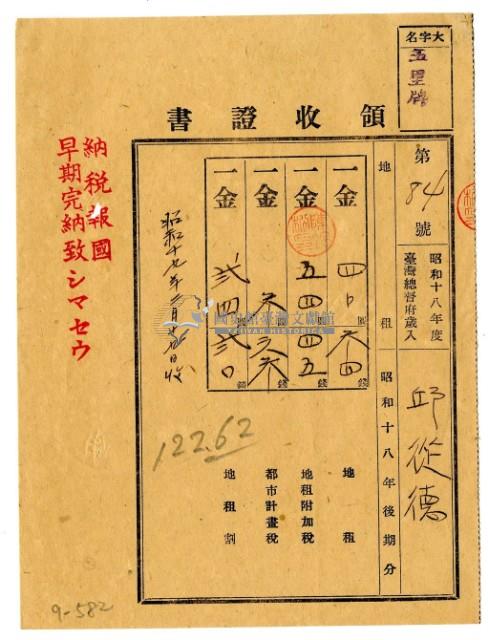 大字名
五里牌
領收證書
第84號
昭和十八年度
臺灣總督府歲入
邱從德
地租
昭和十八年後期分
一金 四〇圓六四錢 地租
一金 五四圓四五錢 地租附加稅
一金 六圓三六錢 都市計畫稅
一金 圓 錢 地租割
昭和十九年 月 日收
納稅報國
早期完納致シマセウ
122.62
國史館臺灣文獻館
TAIWAN HISTORICA
9-582